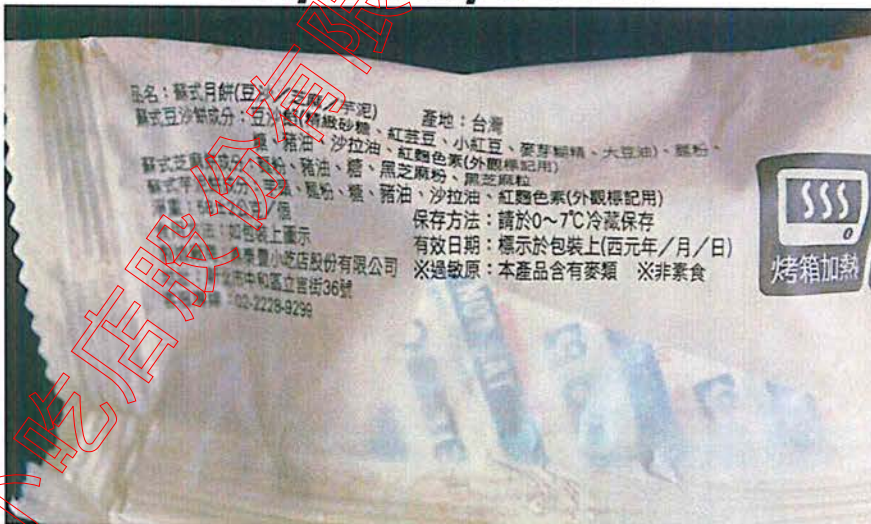 品名：蘇式月餅(豆沙／芝麻／芋泥)　產地：台灣
蘇式豆沙餅成分：豆沙餡(精緻砂糖、紅芸豆、小紅豆、麥芽糊精、大豆油)、麵粉、
糖、豬油、沙拉油、紅麴色素(外觀標記用)
蘇式芝麻餅成分：麵粉、豬油、糖、黑芝麻粉、黑芝麻粒
蘇式芋泥餅成分：芋頭、麵粉、糖、豬油、沙拉油、紅麴色素(外觀標記用)
保存方法：請於0～7℃冷藏保存
：如包裝上圖示
有效日期：標示於包裝上(西元年／月／日)
豐小吃店股份有限公司　※過敏原：本產品含有麥類　※非素食
北市中和區立言街36號
：02-2228-9299
烤箱加熱
吃店股份有限